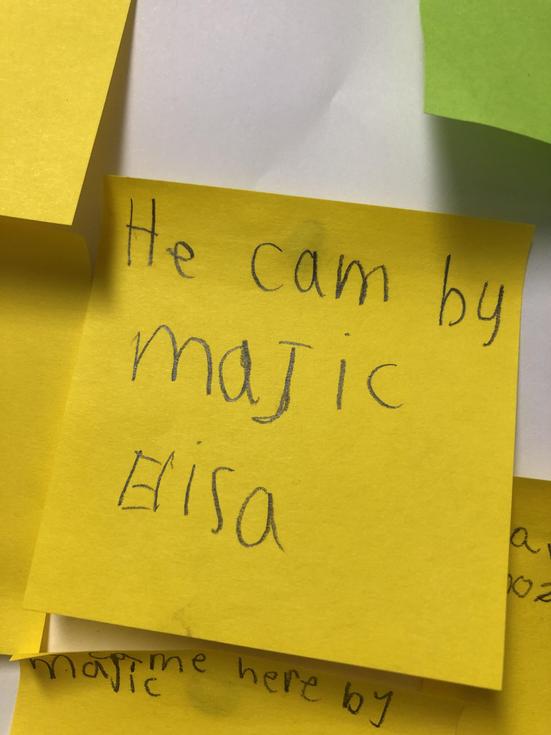 He cam by
maJic
Elisa
me here by
maJic